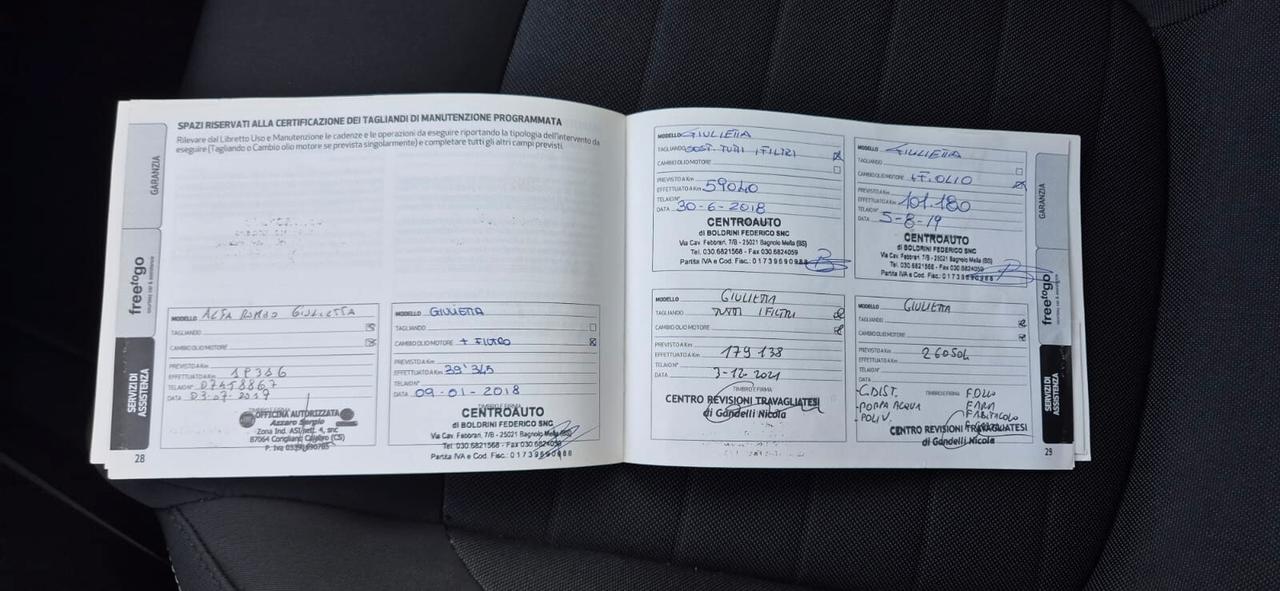 SPAZI RISERVATI ALLA CERTIFICAZIONE DEI TAGLIANDI DI MANUTENZIONE PROGRAMMATA
Rilevare dal Libretto Uso e Manutenzione le cadenze e le operazioni da eseguire riportando la tipologia dell'intervento da
eseguire (Tagliando o Cambio olio motore se prevista singolarmente) e completare tutti gli altri campi previsti.
GARANZIA
freetogo
SERVIZI DI
ASSISTENZA
MODELLO ALFA ROMEO GIULIETTA
TAGLIANDO
CAMBIO OLIO MOTORE
PREVISTO A Km
EFFETTUATO A Km
TELAIO N°
DATA
TIMBRO E FIRMA
OFFICINA AUTORIZZATA
Azzaro Sergio
87064 Corigliano Calabro (CS)
28
MODELLO GIULIETTA
TAGLIANDO
CAMBIO OLIO MOTORE + FILTRO
PREVISTO A Km
EFFETTUATO A Km 39'345
TELAIO N°
DATA 09-01-2018
CENTROAUTO
di BOLDRINI FEDERICO SNC
Via Cav. Febbrari, 7/B - 25021 Bagnolo Mella (BS)
Tel. 030.6821568 - Fax 030.6824059
Partita IVA e Cod. Fisc.: 01739690988
MODELLO GIULIETTA
TAGLIANDO SOST. TUTTI I FILTRI
CAMBIO OLIO MOTORE
PREVISTO A Km
EFFETTUATO A Km 59040
TELAIO N°
DATA 30-6-2018
CENTROAUTO
di BOLDRINI FEDERICO SNC
Via Cav. Febbrari, 7/B - 25021 Bagnolo Mella (BS)
Tel. 030.6821568 - Fax 030.6824059
Partita IVA e Cod. Fisc.: 01739690988
MODELLO GIULIETTA
TAGLIANDO
CAMBIO OLIO MOTORE +F.OLIO
PREVISTO A Km
EFFETTUATO A Km 101.180
TELAIO N°
DATA 5-8-19
CENTROAUTO
di BOLDRINI FEDERICO SNC
Via Cav. Febbrari, 7/B - 25021 Bagnolo Mella (BS)
Tel. 030.6821568 - Fax 030.6824059
Partita IVA e Cod. Fisc.: 01739690988
MODELLO GIULIETTA
TAGLIANDO TUTTI I FILTRI
CAMBIO OLIO MOTORE
PREVISTO A Km
EFFETTUATO A Km 179138
TELAIO N°
DATA 3-12-2021
TIMBRO E FIRMA
CENTRO REVISIONI TRAVAGLIATESI
di Gandelli Nicola
MODELLO GIULIETTA
TAGLIANDO
CAMBIO OLIO MOTORE
PREVISTO A Km
EFFETTUATO A Km
TELAIO N°
C.DIST. TIMBRO E FIRMA F.OLIO
-POMPA ACQUA F.ARIA
-POLIV. F.ABITACOLO
CENTRO REVISIONI TRAVAGLIATESI
di Gandelli Nicola
29
GARANZIA
freetogo
SERVIZI DI
ASSISTENZA